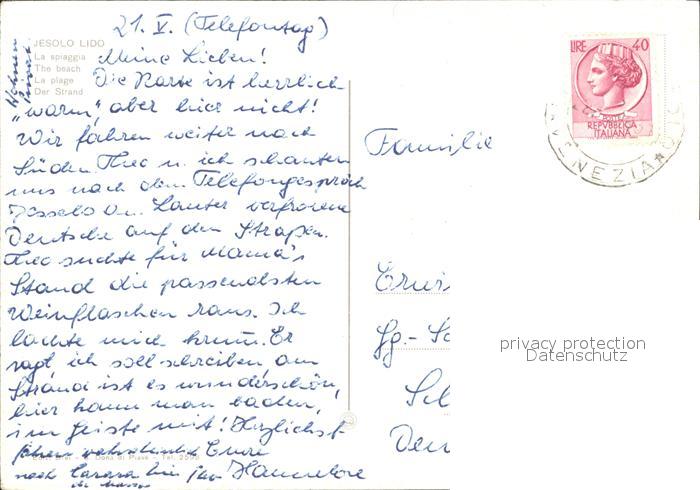 21. V. (Telefontag)
JESOLO LIDO
La spiaggia
The beach
La plage
Der Strand
Meine Lieben!
Die Karte ist herrlich
"warm", aber hier nicht!
Wir fahren weiter nach
Süden. Theo u. ich schauten
uns nach dem Telefongespräch
Jesolo an. Lauter verfrorene
Deutsche auf den Straßen.
Theo suchte für Mama's
Stand die passendsten
Weinflaschen raus. Ich
lachte mich krumm. Er
sagt, ich soll schreiben am
Strand ist es wunderschön,
hier kann man baden,
im Geiste mit! Herzlichst
fahren wahrscheinlich Eure
nach Carrara hier Hannelore
LIRE 40
POSTE
REPVBBLICA
ITALIANA
VENEZIA
Familie
Erwi
Gg.-Sc
Sc
Deu
privacy protection
Datenschutz